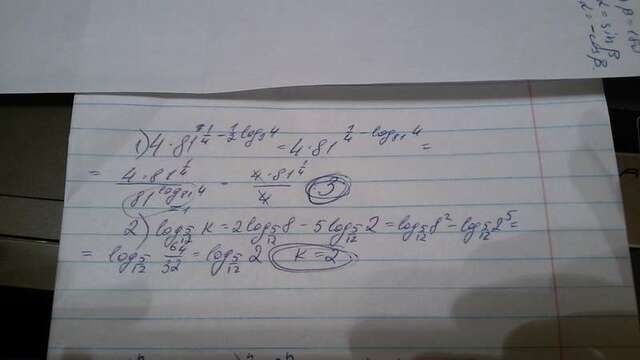 β = 180
α = sin β
α = -cos β
1) 4·81^(1/4 - 1/2 log₉4) = 4·81^(1/4 - log₈₁4) =
= (4·81^(1/4))/(81^(log₈₁4)) = (4·81^(1/4))/4 (3)
2) log_(5/12) K = 2log_(5/12) 8 - 5log_(5/12) 2 = log_(5/12) 8² - log_(5/12) 2⁵ =
= log_(5/12) 64/32 = log_(5/12) 2 (K = 2)